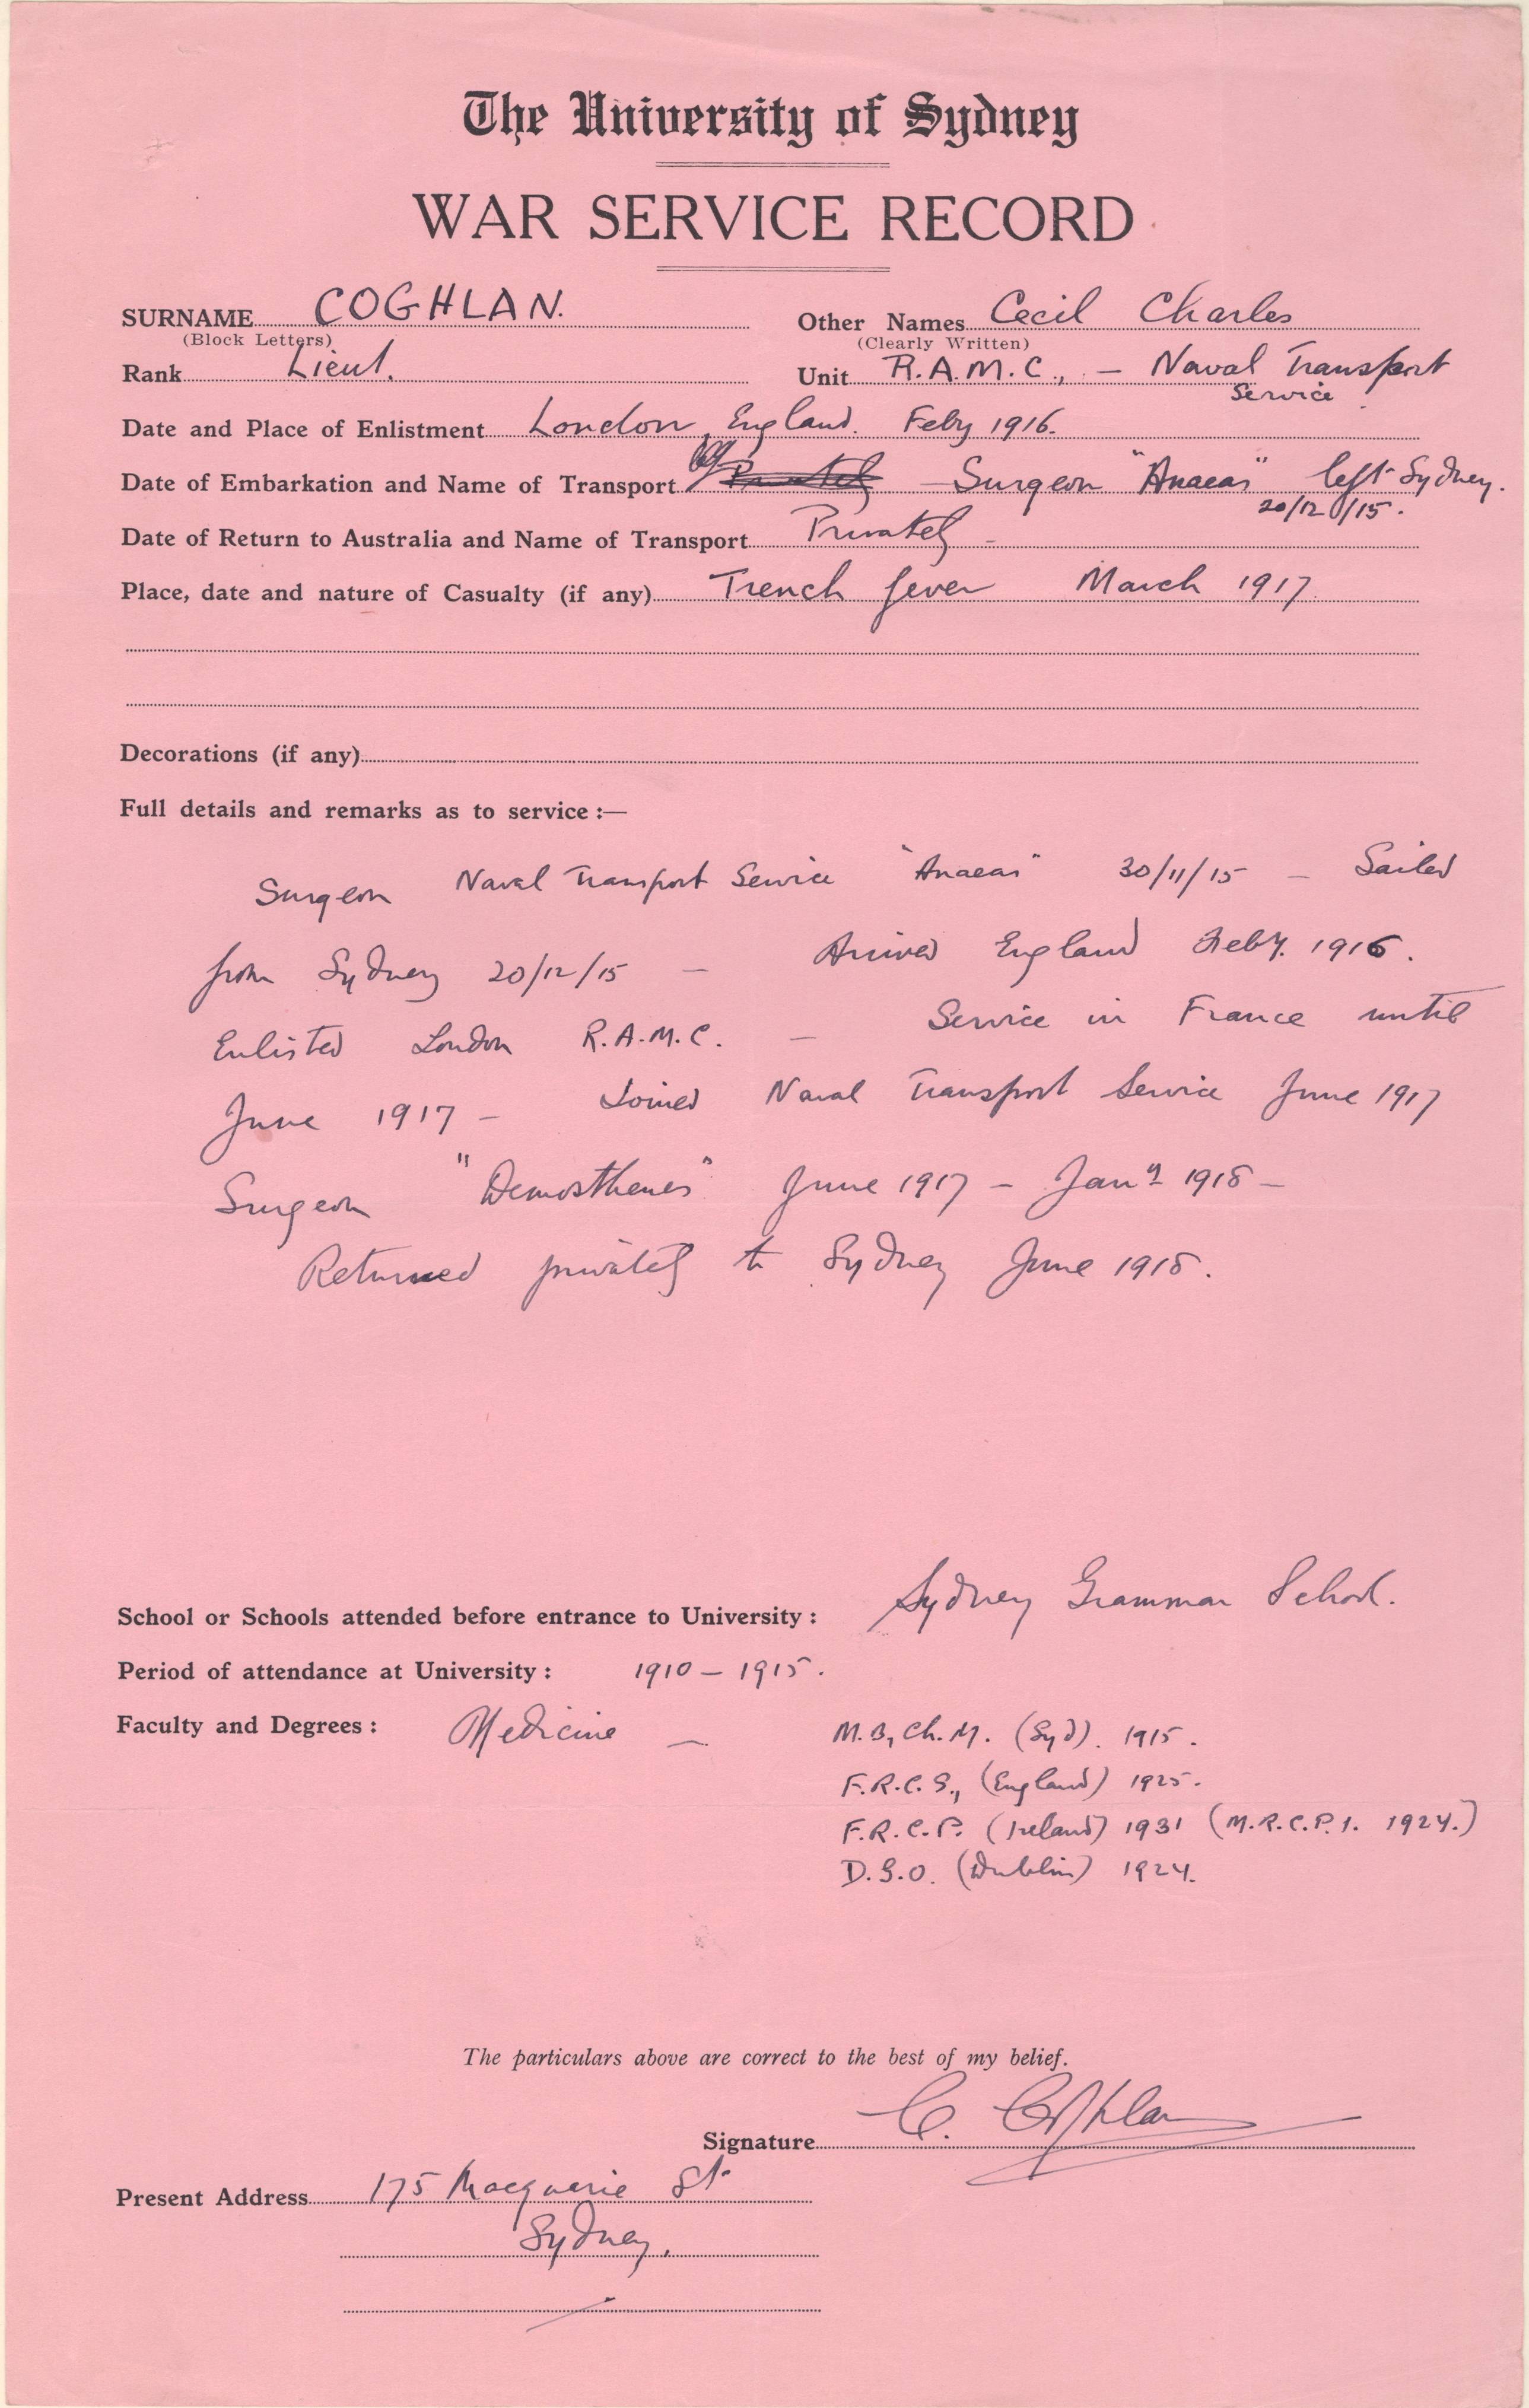 The University of Sydney
WAR SERVICE RECORD
SURNAME COGHLAN. Other Names Cecil Charles
(Block Letters) (Clearly Written)
Rank Lieut. Unit R.A.M.C., – Naval Transport
Service
Date and Place of Enlistment London, England. Feby 1916.
Date of Embarkation and Name of Transport – Surgeon "Anaeas" left Sydney.
20/12/15.
Date of Return to Australia and Name of Transport Privately –
Place, date and nature of Casualty (if any) Trench fever March 1917
Decorations (if any)
Full details and remarks as to service :—
Surgeon Naval Transport Service "Anaeas" 30/11/15 – Sailed
from Sydney 20/12/15 – Arrived England Feby. 1916.
Enlisted London R.A.M.C. – Service in France until
June 1917 – Joined Naval Transport Service June 1917
Surgeon "Demosthenes" June 1917 – Jany 1918 –
Returned privately to Sydney June 1918.
School or Schools attended before entrance to University : Sydney Grammar School.
Period of attendance at University : 1910 – 1915.
Faculty and Degrees : Medicine – M.B, Ch.M. (Syd). 1915.
F.R.C.S., (England) 1925.
F.R.C.P. (Ireland) 1931 (M.R.C.P.I. 1924.)
D.G.O. (Dublin) 1924.
The particulars above are correct to the best of my belief.
Signature C. Coghlan
Present Address 175 Macquarie St
Sydney.